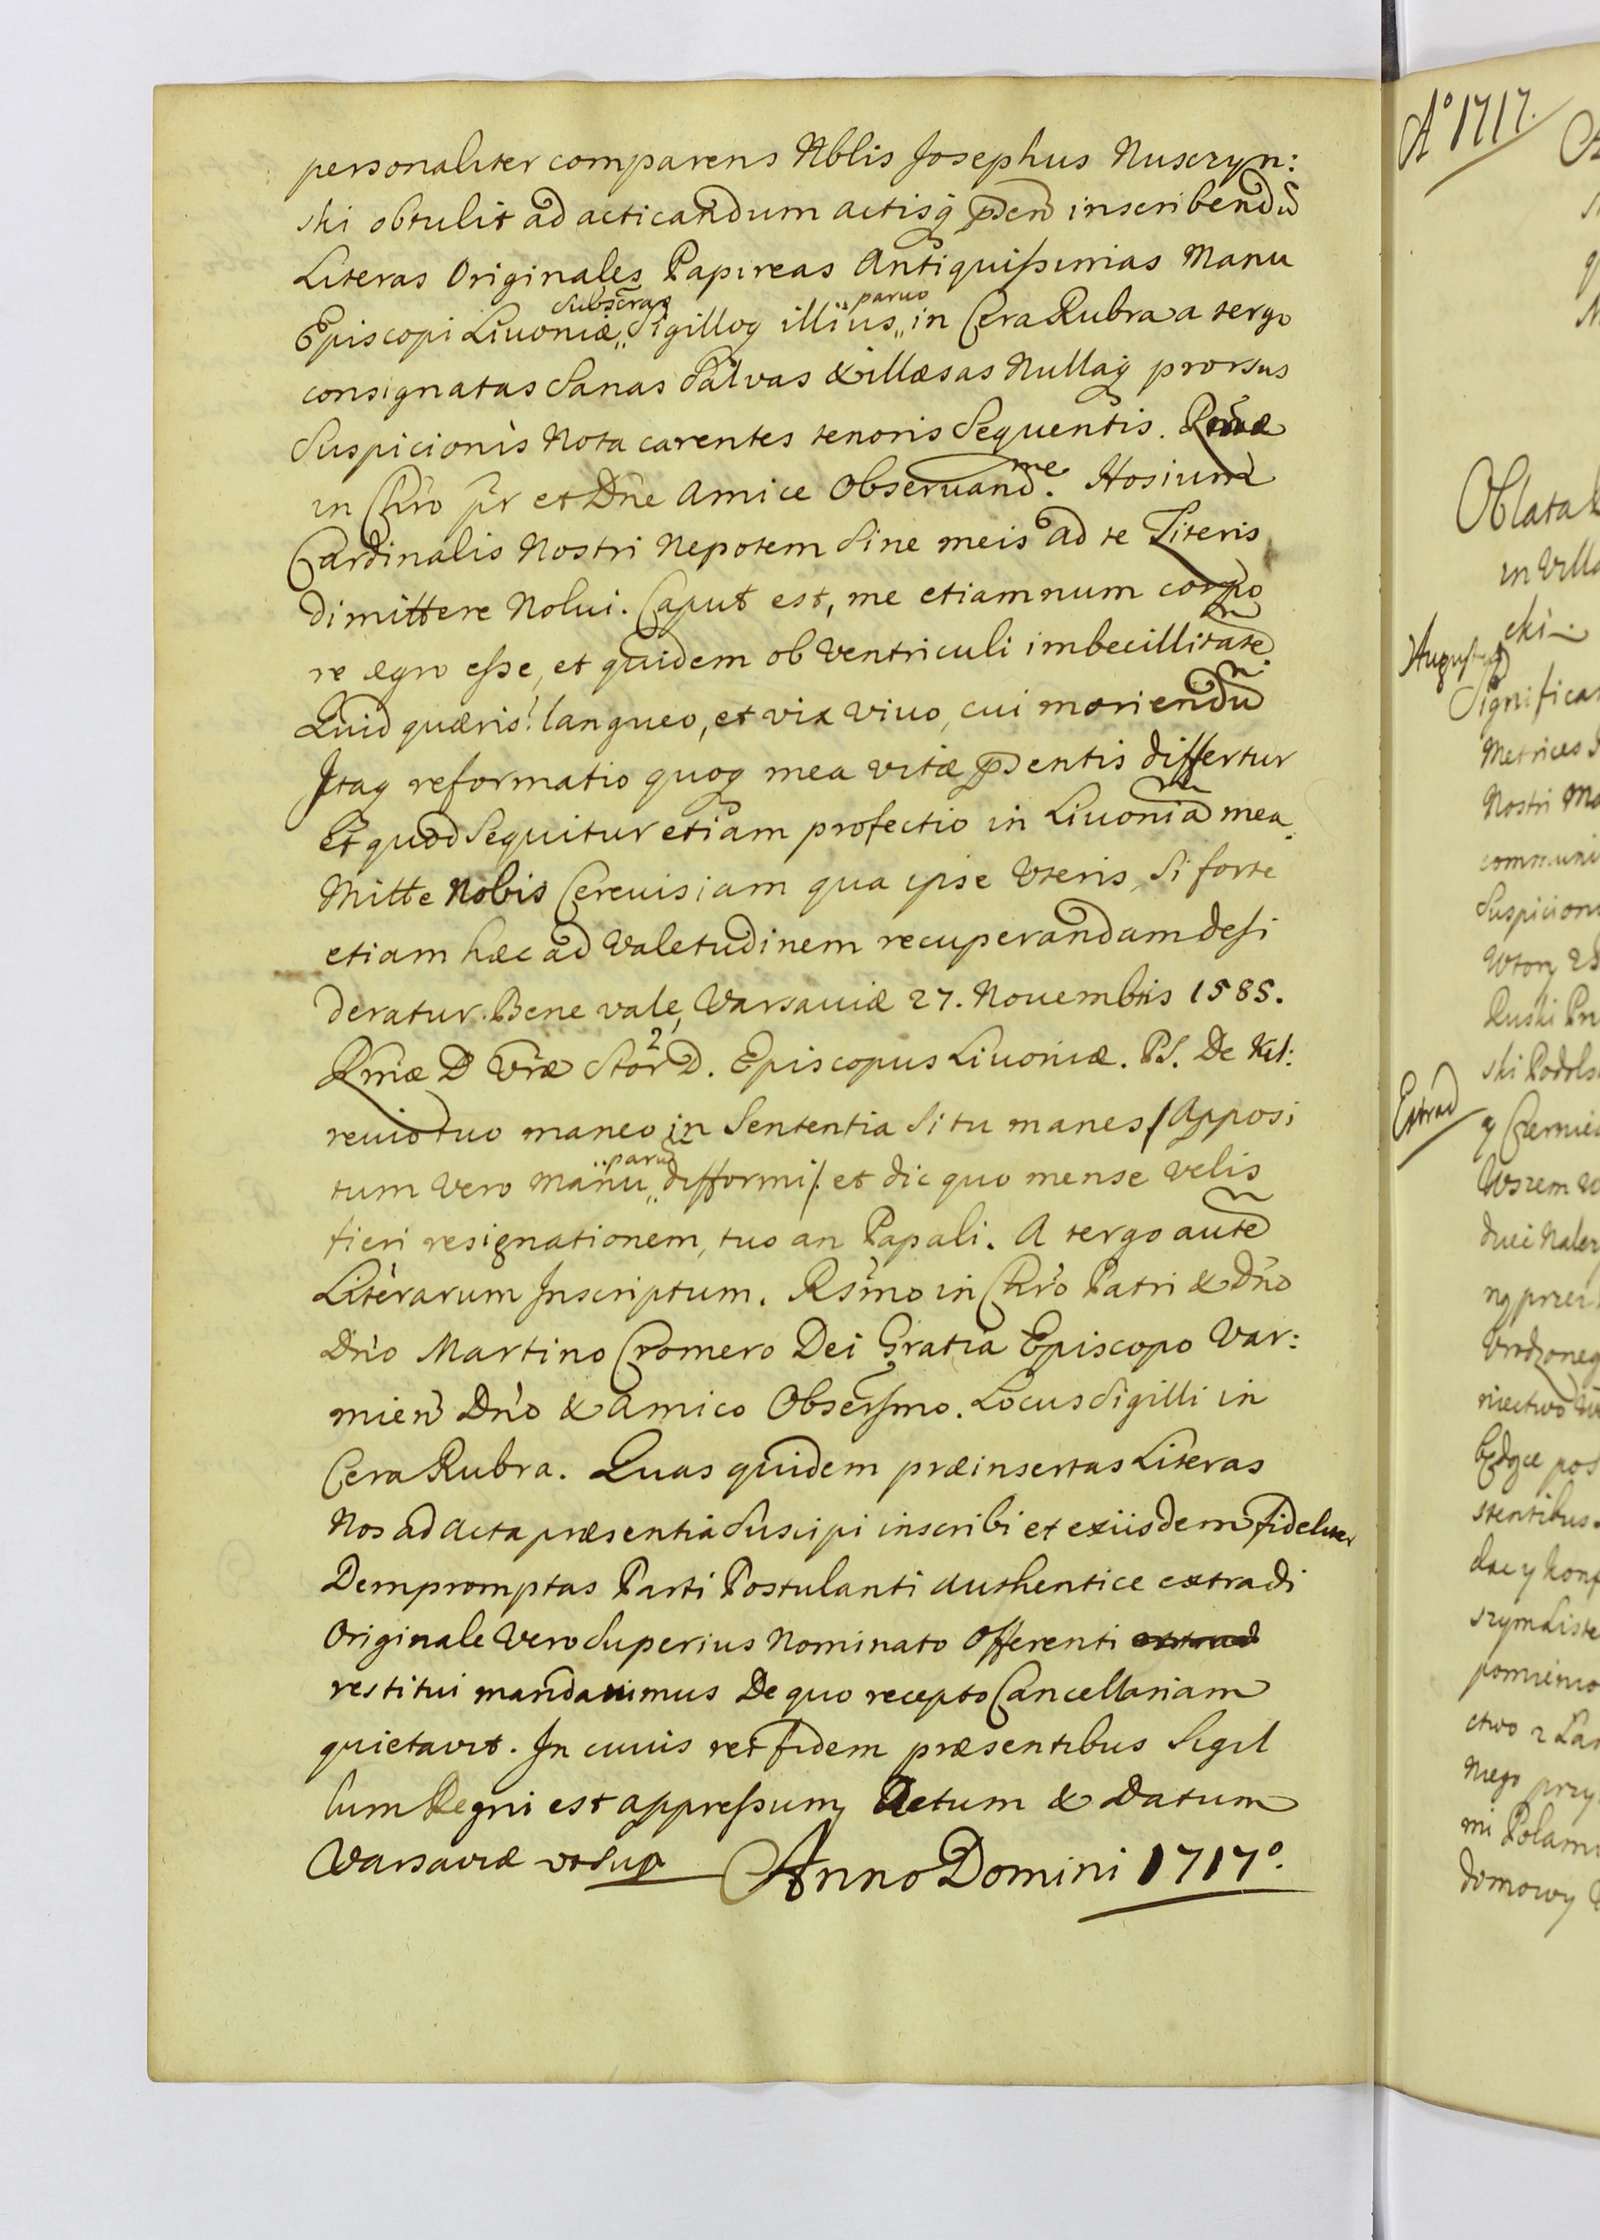 personaliter comparens Nblis Josephus Nuszczyn:
ski obtulit ad acticandum actisq̃ p̃sen inscribendũ
Literas Originales Papireas Antiquissimas Manu
Episcopi Livoniæ subscras Sigilloq illius parvo in Cera Rubra a tergo
consignatas Sanas Salvas & illæsas Nullaq̃ prorsus
Suspicionis Nota carentes tenoris Sequentis. Rñdæ
in Chro pr et Dñe Amice Observand.me Hosium
Cardinalis Nostri Nepotem Sine meis ad te Literis
dimittere Nolui. Caput est, me etiamnum corpo
re ægro esse, et quidem ob Ventriculi imbecillitatẽ
Quid quæris? langueo, et vix vivo, cui moriendũ
Itaq reformatio quoq mea vitæ p̃sentis differtur
Et quod Sequitur etiam profectio in Livoniã mea.
Mitte Nobis Cerevisiam qua ipse Vteris, Si forte
etiam hæc ad Valetudinem recuperandam desi
deratur. Bene vale, Varsaviæ 27. Novembris 1585.
Rmæ D Vræ Stor D. Episcopus Livoniæ. PS. De Kil:
revio tuo maneo in Sententia Si tu manes /Apposi
tum Vero Manu parũ difformi/ et dic quo mense velis
fieri resignationem, tuo an Papali. A tergo autẽ
Literarum Inscriptum. Rsmo in Chro Patri & Dño
Dño Martino Cromero Dei Gratia Episcopo Var:
mien Dño & Amico Obsersmo. Locus Sigilli in
Cera Rubra. Quas quidem præinsertas Literas
Nos ad Acta præsentia Suscipi inscribi et exiisdem fideliter
Depromptas Parti Postulanti authentice extradi
Originale Vero Superius Nominato Offerenti extrad
restitui mandavimus De quo recepto Cancellariam
quietavit. In cuius rei fidem præsentibus Sigil
lum Regni est appressum Actum & Datum
Varsaviæ vt Sup Anno Domini 1717º.
Aº 1717.
Oblata
in Villa
cki
Augustus
Significa
Metrices
Nostri Ma
communi
Suspicioni
Wtory
Ruski Pru
ski Podols
Extrad
y Czernie
Wszem
Urodzoneg
będące pos
stentibus.
dac y konf
szym Liste
pomienio
ctwo z
Niego przy
domowy